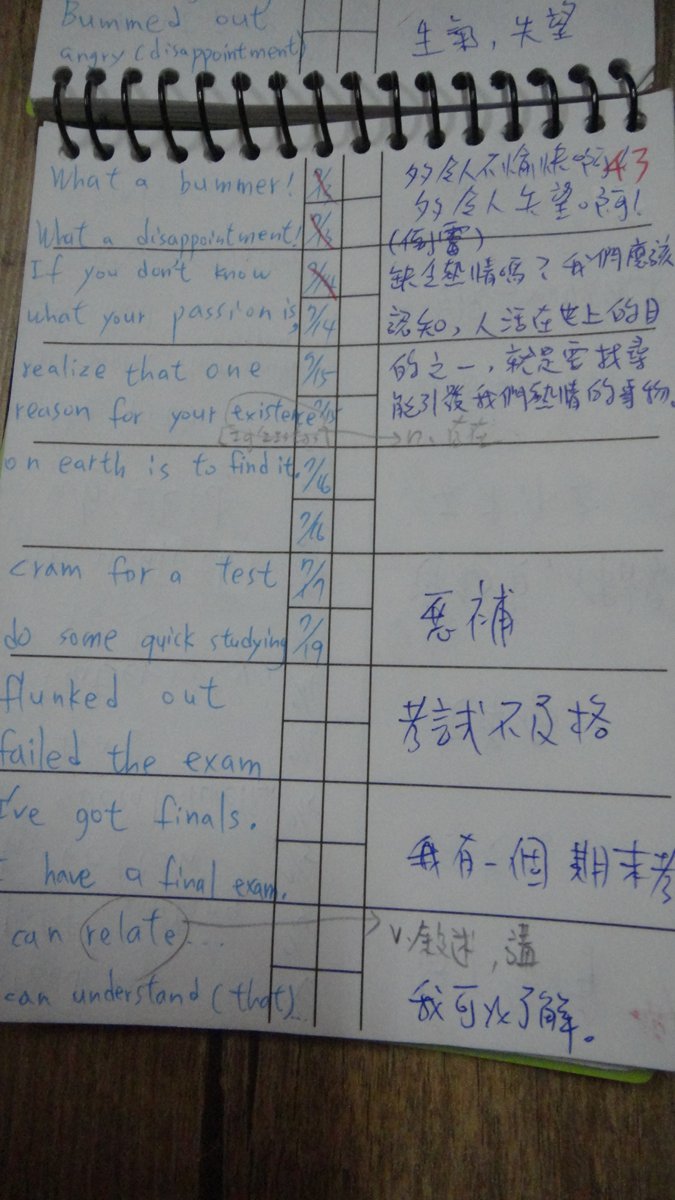 Bummed out
angry (disappointment)
生氣，失望
43
What a bummer!
多令人不愉快啊!
What a disappointment!
多令人失望啊!
(倒霉)
If you don't know
what your passion is,
realize that one
reason for your existence
on earth is to find it.
缺乏熱情嗎？我們應該
認知，人活在世上的目
的之一，就是要找尋
能引發我們熱情的事物。
n. 存在
7/14
7/15
7/15
7/16
7/16
cram for a test
7/17
do some quick studying
7/19
惡補
flunked out
failed the exam
考試不及格
I've got finals.
I have a final exam.
我有一個期末考
can relate...
v. 敘述，講
can understand (that)...
我可以了解。